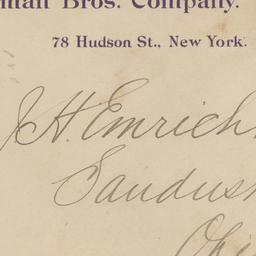 man Bros. Company.
78 Hudson St., New York.
J. H. Emrich
Sandus
Ohi